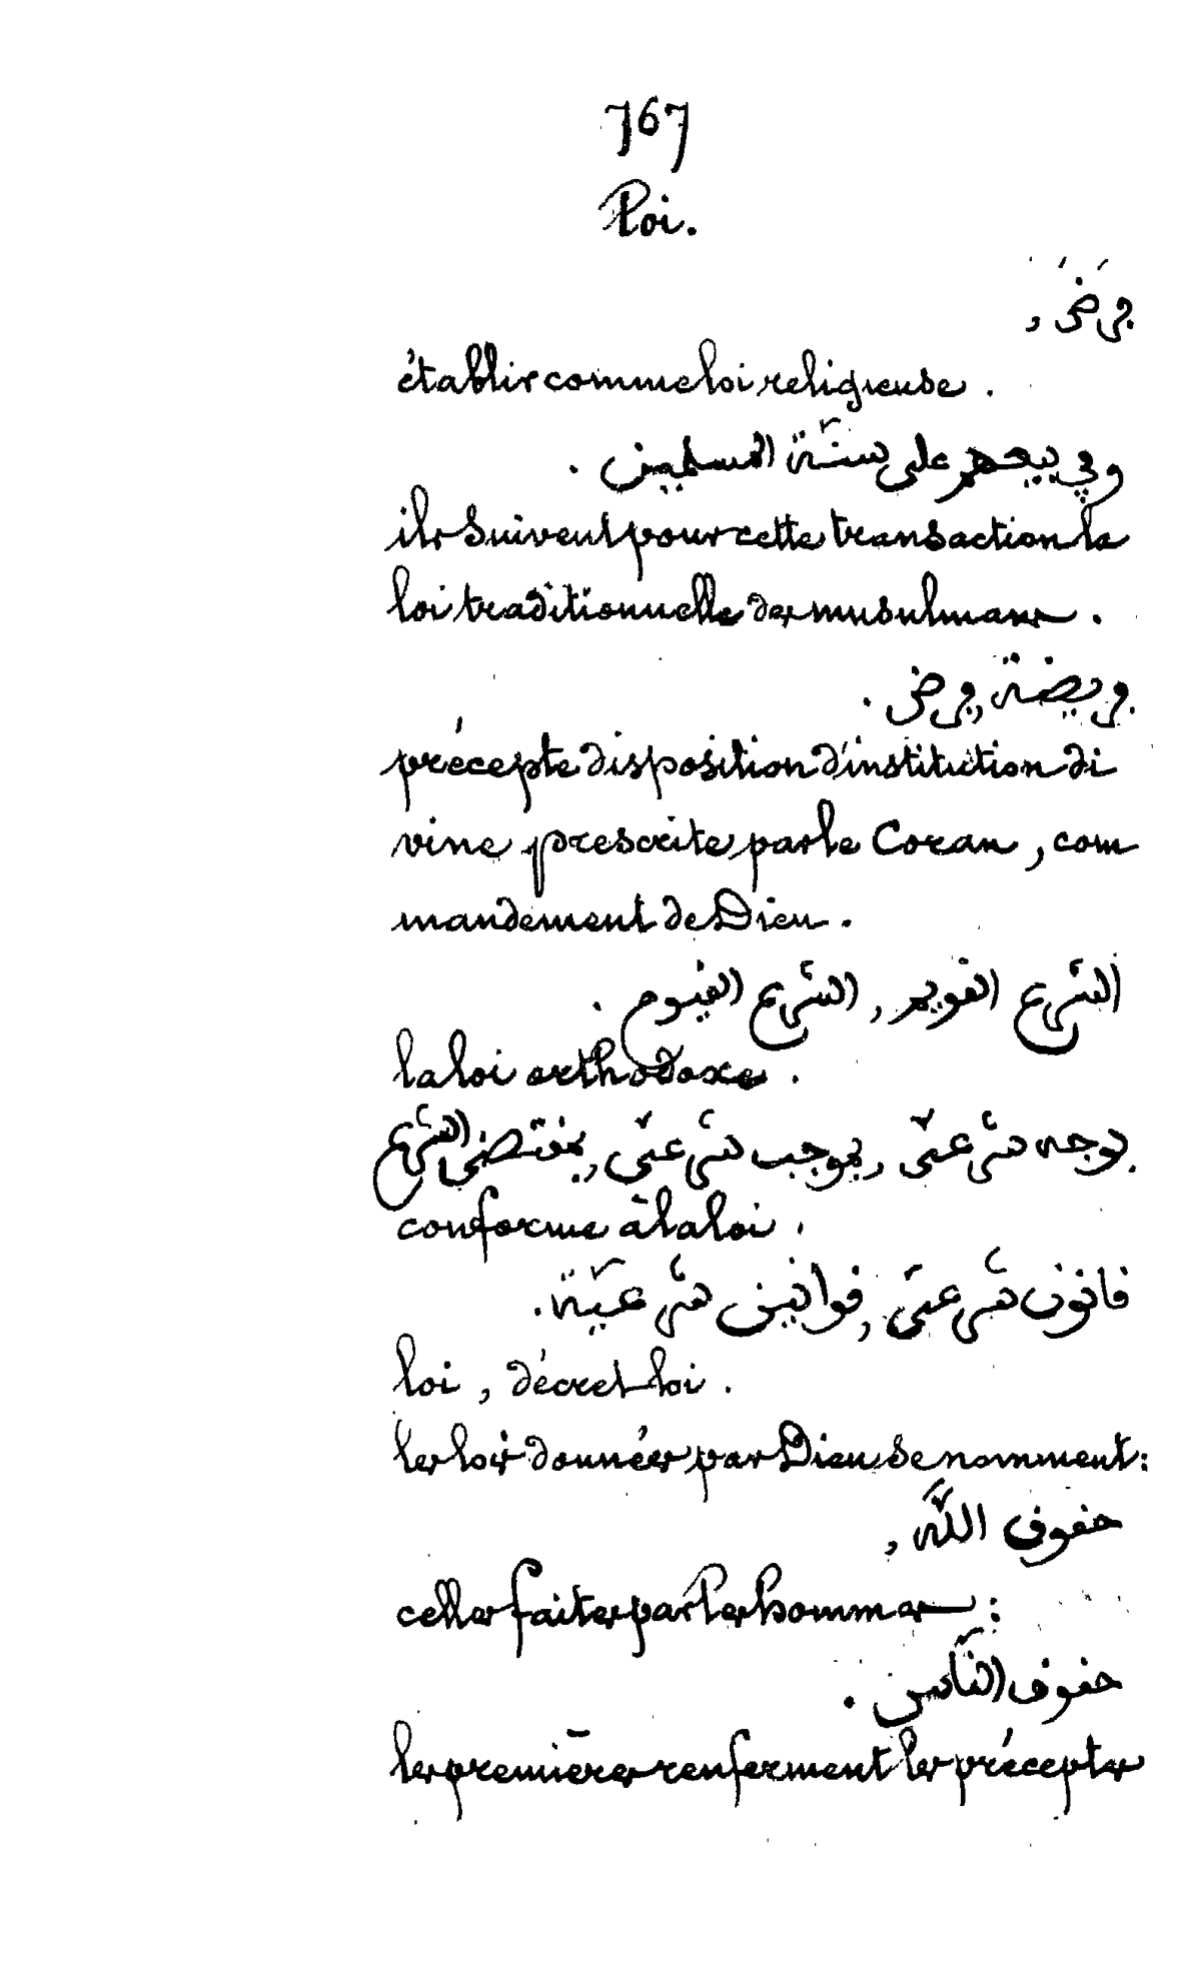 767
Loi.
فَرَضَ,
établir comme loi religieuse.
وفي بيعهم على سنّة المسلمين.
ils suivent pour cette transaction la
loi traditionnelle des musulmans.
فريضة, فرض.
précepte disposition d'institution di
vine prescrite par le Coran, com
mandement de Dieu.
الشرع القويم, الشرع القيوم.
la loi orthodoxe.
بوجه شرعىّ, بموجب شرعىّ, بمقتضى الشرع
conforme à la loi.
قانون شرعىّ, قوانين شرعيّة.
loi, décret loi.
les lois données par Dieu se nomment:
حقوق اللّٰه,
celles faites par les hommes:
حقوق النّاس.
les premières renferment les préceptes